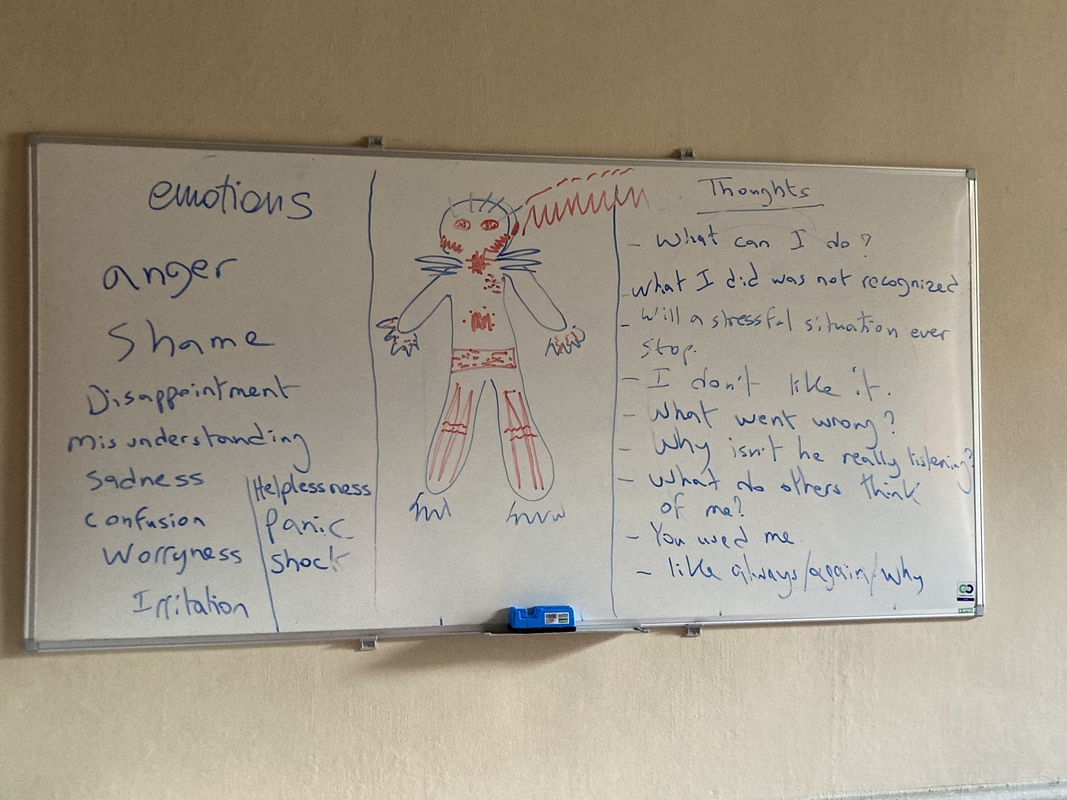 emotions
anger
Shame
Disappointment
misunderstanding
Sadness
confusion
Worryness
Irritation
Helplessness
panic
shock
Thoughts
- What can I do?
- What I did was not recognized.
- Will a stressful situation ever
stop.
- I don't like it.
- What went wrong?
- Why isn't he really listening?
- What do others think
of me?
- You used me
- like always/again/why